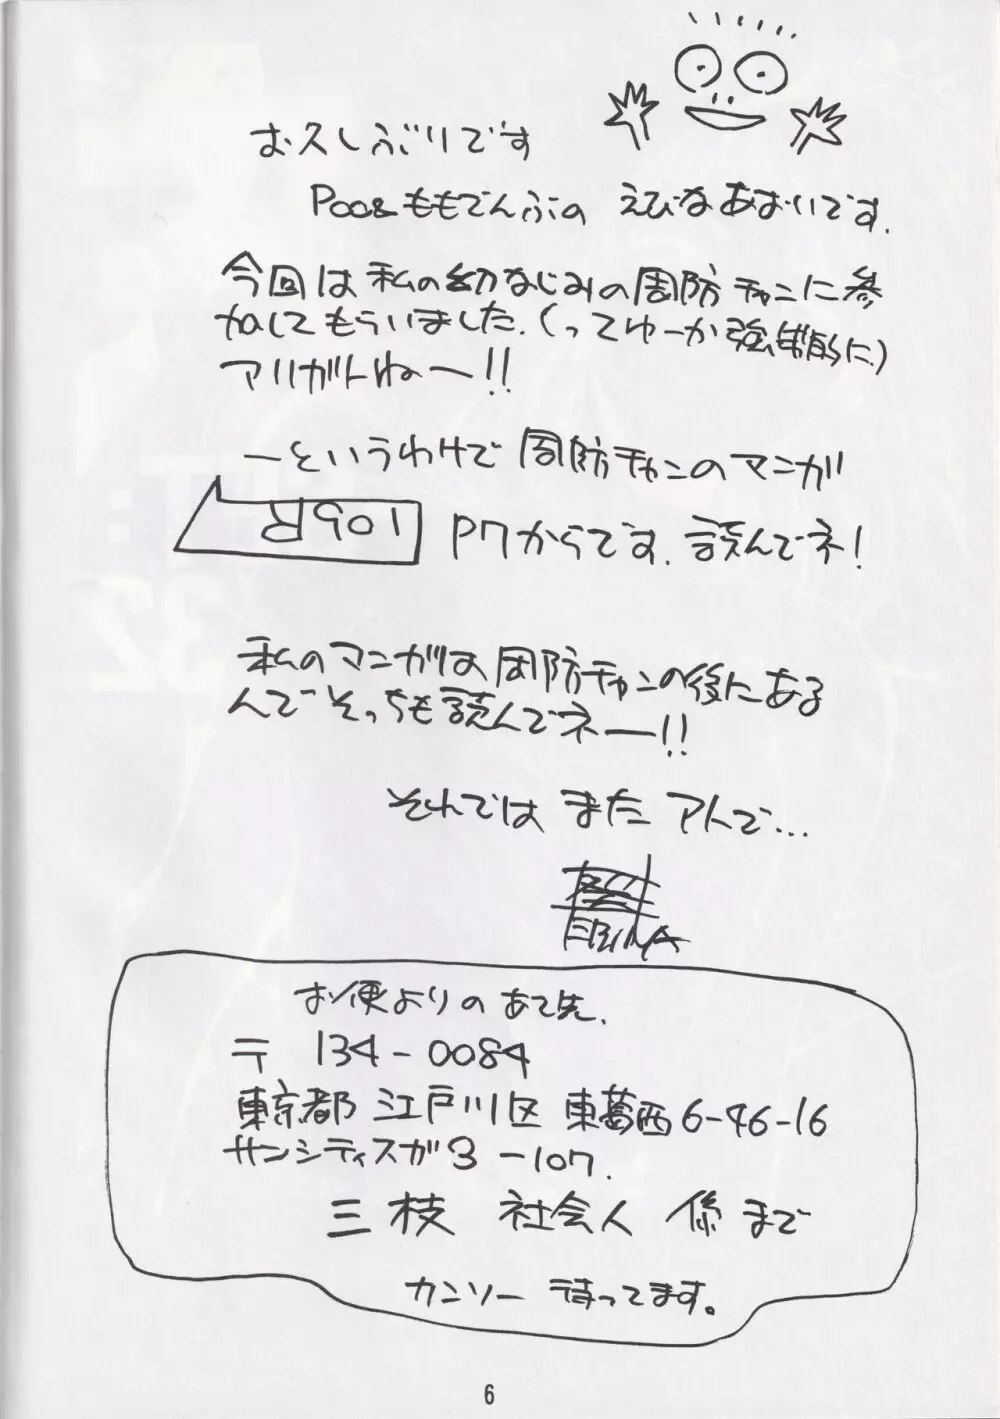 お久しぶりです
Poo&ももでんぶの えびなあおいです.
今回は私の幼なじみの周防チャンに参
加してもらいました.(ってゆーか強制的に)
アリガトねー!!
ーというわけで周防チャンのマンガ
P7からです. 読んでネ!
私のマンガは周防チャンの後にある
んでそっちも読んでネー!!
それでは また アトで...
EBINA
お便よりのあて先.
〒 134-0084
東京都 江戸川区 東葛西6-46-16
サンシティスガ3 -107.
三枝 社会人 係まで
カンソー 待ってます。
6